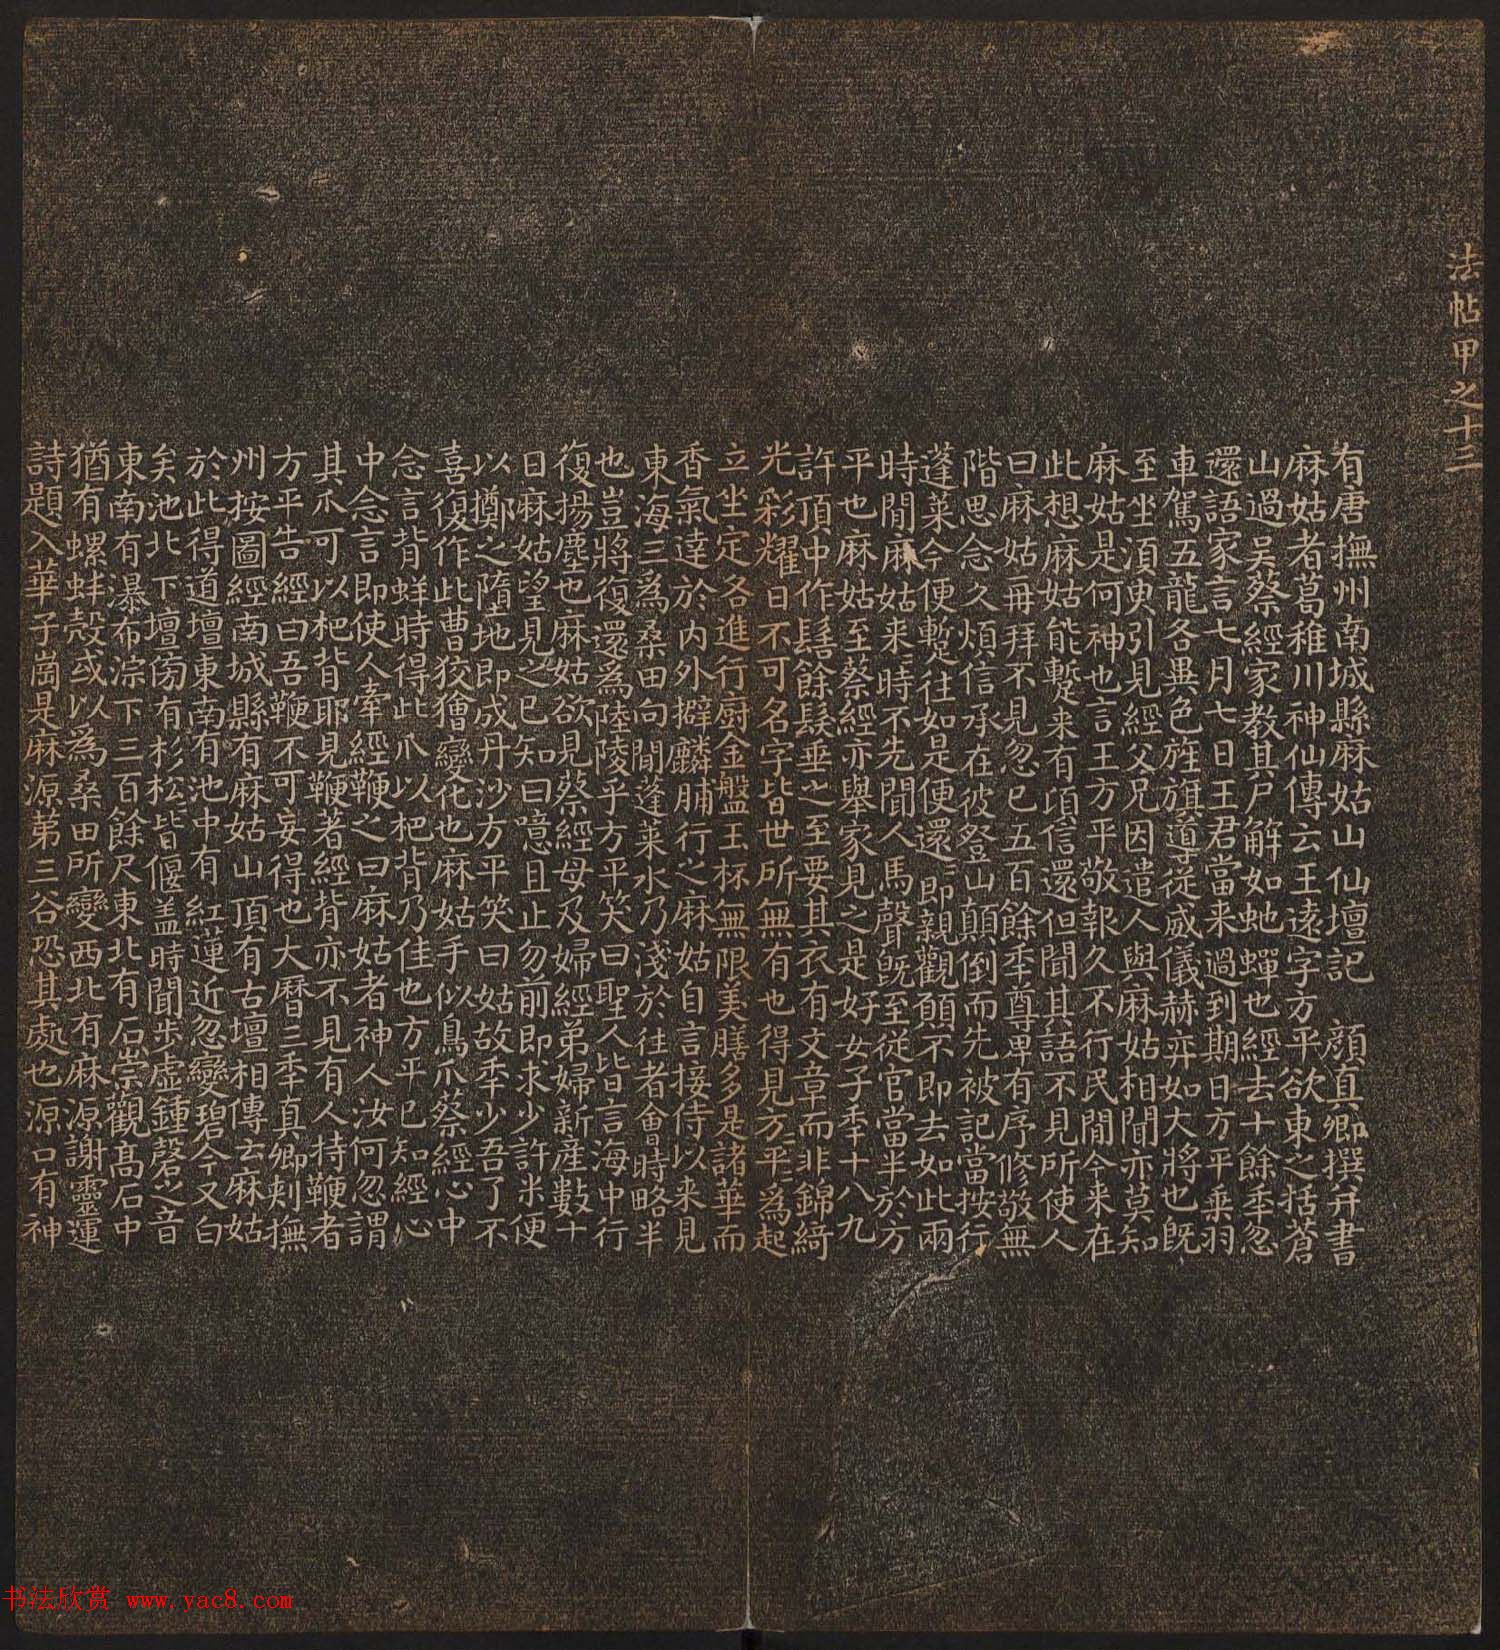 法帖甲之十三
有唐撫州南城縣麻姑山仙壇記 顏真卿撰并書
麻姑者葛稚川神仙傳云王遠字方平欲東之括蒼
山過吳蔡經家教其尸解如虵蟬也經去十餘秊忽
還語家言七月七日王君當来過到期日方平乘羽
車駕五龍各異色旌旗導從威儀赫弈如大將也既
至坐湏臾引見經父兄因遣人與麻姑相聞亦莫知
麻姑是何神也言王方平敬報久不行民間今来在
此想麻姑能蹔来有頃信還但聞其語不見所使人
曰麻姑再拜不見忽已五百餘秊尊卑有序修敬無
階思念久煩信承在彼登山顛倒而先被記當按行
蓬莱今便蹔往如是便還即親觀願不即去如此兩
時間麻姑来来時不先聞人馬聲既至從官當半於方
平也麻姑至蔡經亦舉家見之是好女子秊十八九
許頂中作髻餘髮垂之至要其衣有文章而非錦綺
光彩耀日不可名字皆世所無有也得見方平方平為起
立坐定各進行厨金盤玉杯無限美膳多是諸華而
香氣達於内外擗麟脯行之麻姑自言接侍以来見
東海三為桑田向間蓬莱水乃淺於往者會時略半
也豈將復還為陸陵乎方平笑曰聖人皆言海中行
復揚塵也麻姑欲見蔡經母及婦經弟婦新産數十
日麻姑望見之已知曰噫且止勿前即求少許米便
以擲之墮地即成丹沙方平笑曰姑故秊少吾了不
喜復作此曹狡獪變化也麻姑手似鳥爪蔡經心中
念言背蛘時得此爪以杷背乃佳也方平已知經心
中念言即使人牽經鞭之曰麻姑者神人汝何忽謂
其爪可以杷背耶見鞭著經背亦不見有人持鞭者
方平告經曰吾鞭不可妄得也大曆三秊真卿刺撫
州按圖經南城縣有麻姑山頂有古壇相傳云麻姑
於此得道壇東南有池中有紅蓮近忽變碧今又白
矣池北下壇傍有杉松皆偃盖時聞步虚鍾磬之音
東南有瀑布淙下三百餘尺東北有石崇觀高石中
猶有螺蚌殼或以為桑田所變西北有麻源謝靈運
詩題入華子崗是麻源第三谷恐其處也源口有神
书法欣赏 www.yac8.com